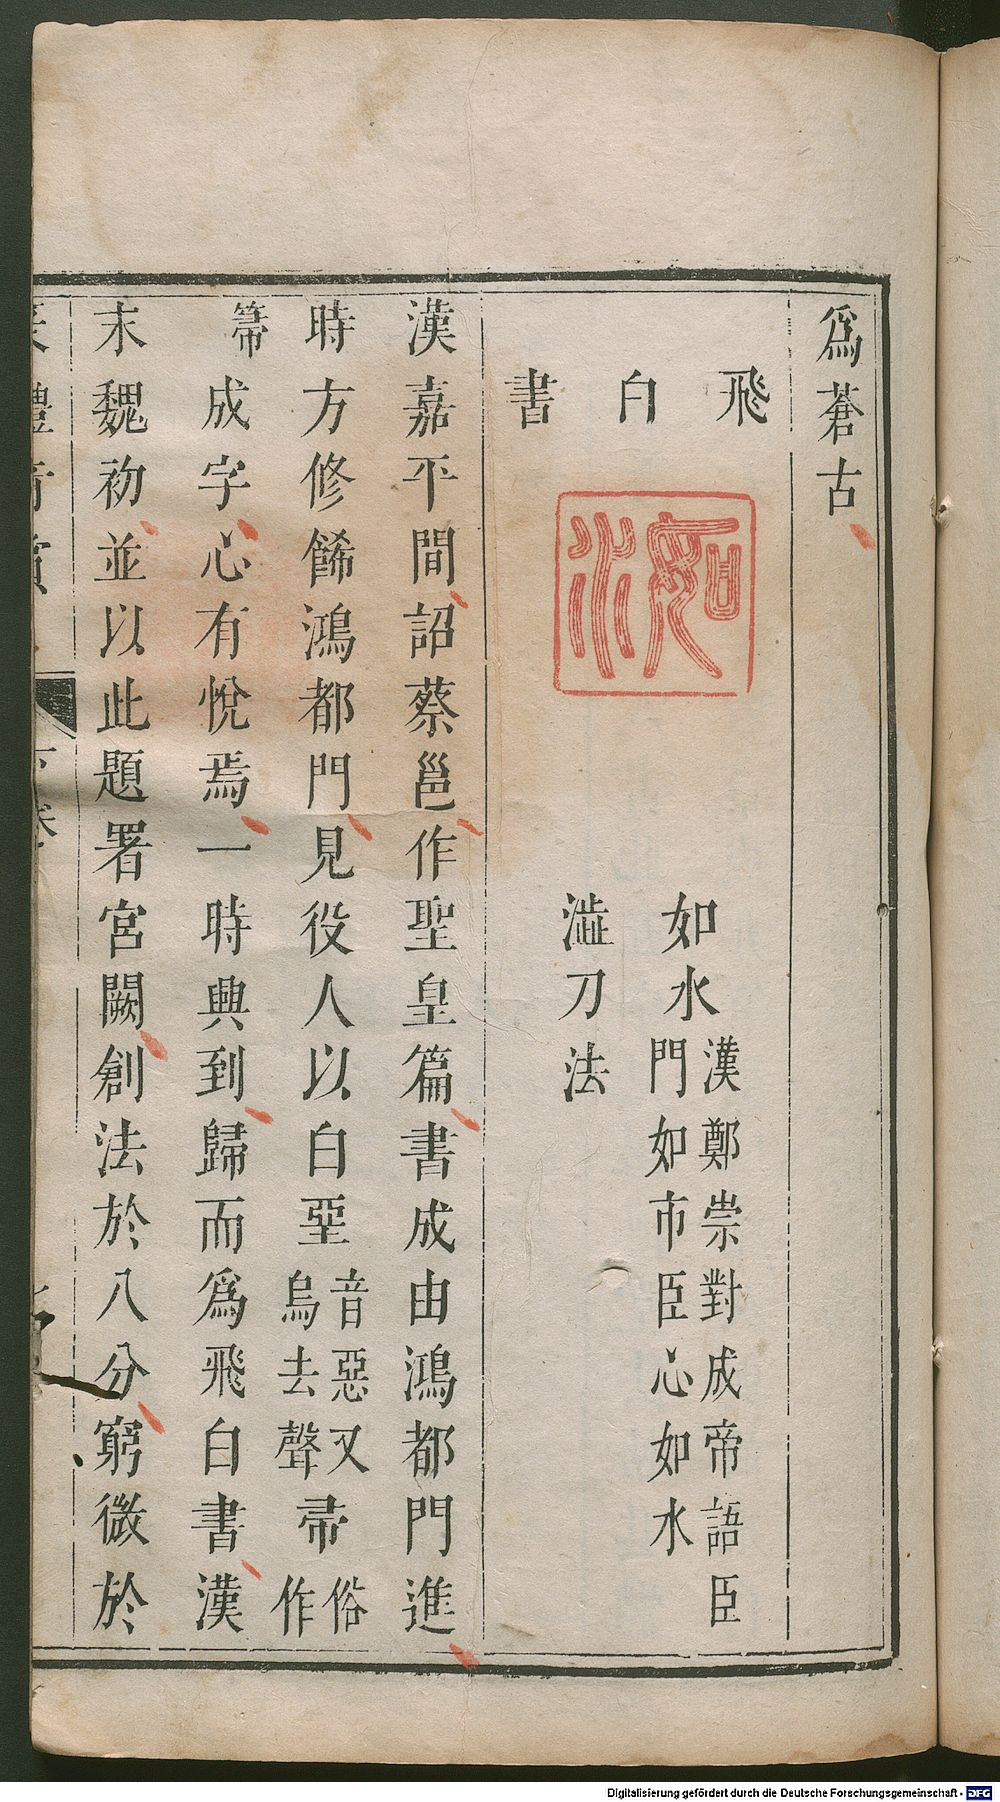 爲蒼古
飛白書
如水
漢鄭崇對成帝語臣
門如市臣心如水
澁刀法
漢嘉平間詔蔡邕作聖皇篇書成由鴻都門進
時方修餙鴻都門見役人以白堊音惡又烏去聲帚俗作
箒成字心有悅焉一時興到歸而爲飛白書漢
末魏初並以此題署宮闕創法於八分窮微於
Digitalisierung gefördert durch die Deutsche Forschungsgemeinschaft - DFG